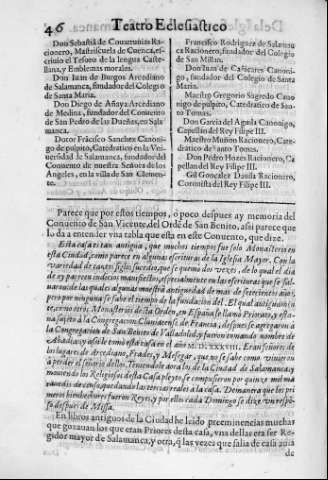 46 Teatro Eclesiastico
Don Sebastiã de Couarruuias Ra-
cionero, Mastriscuela de Cuenca, es-
criuio el Tesoro de la lengua Caste-
llana, y Emblemas morales.
Don Iuan de Burgos Arcediano
de Salamanca, fundador del Colegio
de Santa Maria.
Don Diego de Añaya Arcediano
de Medina, fundador del Conuento
de San Pedro de las Dueñas, en Sala
manca.
Dotor Frãcisco Sanchez Canoni-
go de pulpito, Catedratico en la Vni-
uersidad de Salamanca, fundador del
Conuento de nuestra Señora de los
Angeles, en la villa de San Clemen-
te.
Francisco Rodriguez de Salaman
ca Racionero, fundador del Colegio
de San Millan.
Don Iuan de Cañizares Canoni-
go, fundador del Colegio de Santa
Maria.
Maestro Gregorio Sagredo Cano
nigo de pulpito, Catedratico de San-
to Tomas.
Don Garcia del Aguila Canonigo,
Capellan del Rey Filipe III.
Maestro Muñon Racionero, Cate-
dratico de Santo Tomas.
Don Pedro Hozes Racionero, Ca
pellan del Rey Filipe III.
Gil Gonçalez Dauila Racionero,
Coronista del Rey Filipe III.
Parece que por estos tiempos, o poco despues ay memoria del
Conuento de San Vicente, del Ordẽ de San Benito, assi parece que
lo da a entender vna tabla que està en este Conuento, que dize.
Esta casa es tan antigua, que muchos tiempos fue solo Monasterio en
esta Ciudad, como parece en algunas escrituras de la Iglesia Mayor. Con la
variedad de tantos siglos sucedio, que se quemo dos vezes, de lo qual el dia
de oy parecen indicios manifiestos, especialmente en las escrituras que se sal-
uaron de las quales algunas muestrã antiguedad de mas de setecientos años,
pero por ninguna se sabe el tiempo de la fundacion del. El qual antiguamen
te, como otros Monasterios de la Orden, en España se llamò Priorato, y esta-
ua sujeto a la Congregacion Cluniacense de Francia, despues se agregaron a
la Congregacion de San Benito de Valladolid, y fueron tomando nombre de
Abadias, y assi le tomò esta casa en el año M.CCCC.XXXIII. Eran señores de
los lugares de Arcediano, Frades, y Mesegar, que no se sabe como vinieron
a perder el señorio dellos. Teniendole aora los de la Ciudad de Salamanca, y
mouiendo los Religiosos desta Casa pleyto se compusieron por quinze mil ma
rauedis de censo, quedando las tercias reales a la casa. Demanera que los pri
meros biẽhechores fueron Reyes, y por ellos cada Domingo se dize vn respõ-
so despues de Missa.
En libros antiguos de la Ciudad he leido preeminencias muchas
que gozauan los que eran Priores desta casa, vna dellas era ser Re-
gidor mayor de Salamanca, y otra, q̃ las vezes que salia de casa auia
de